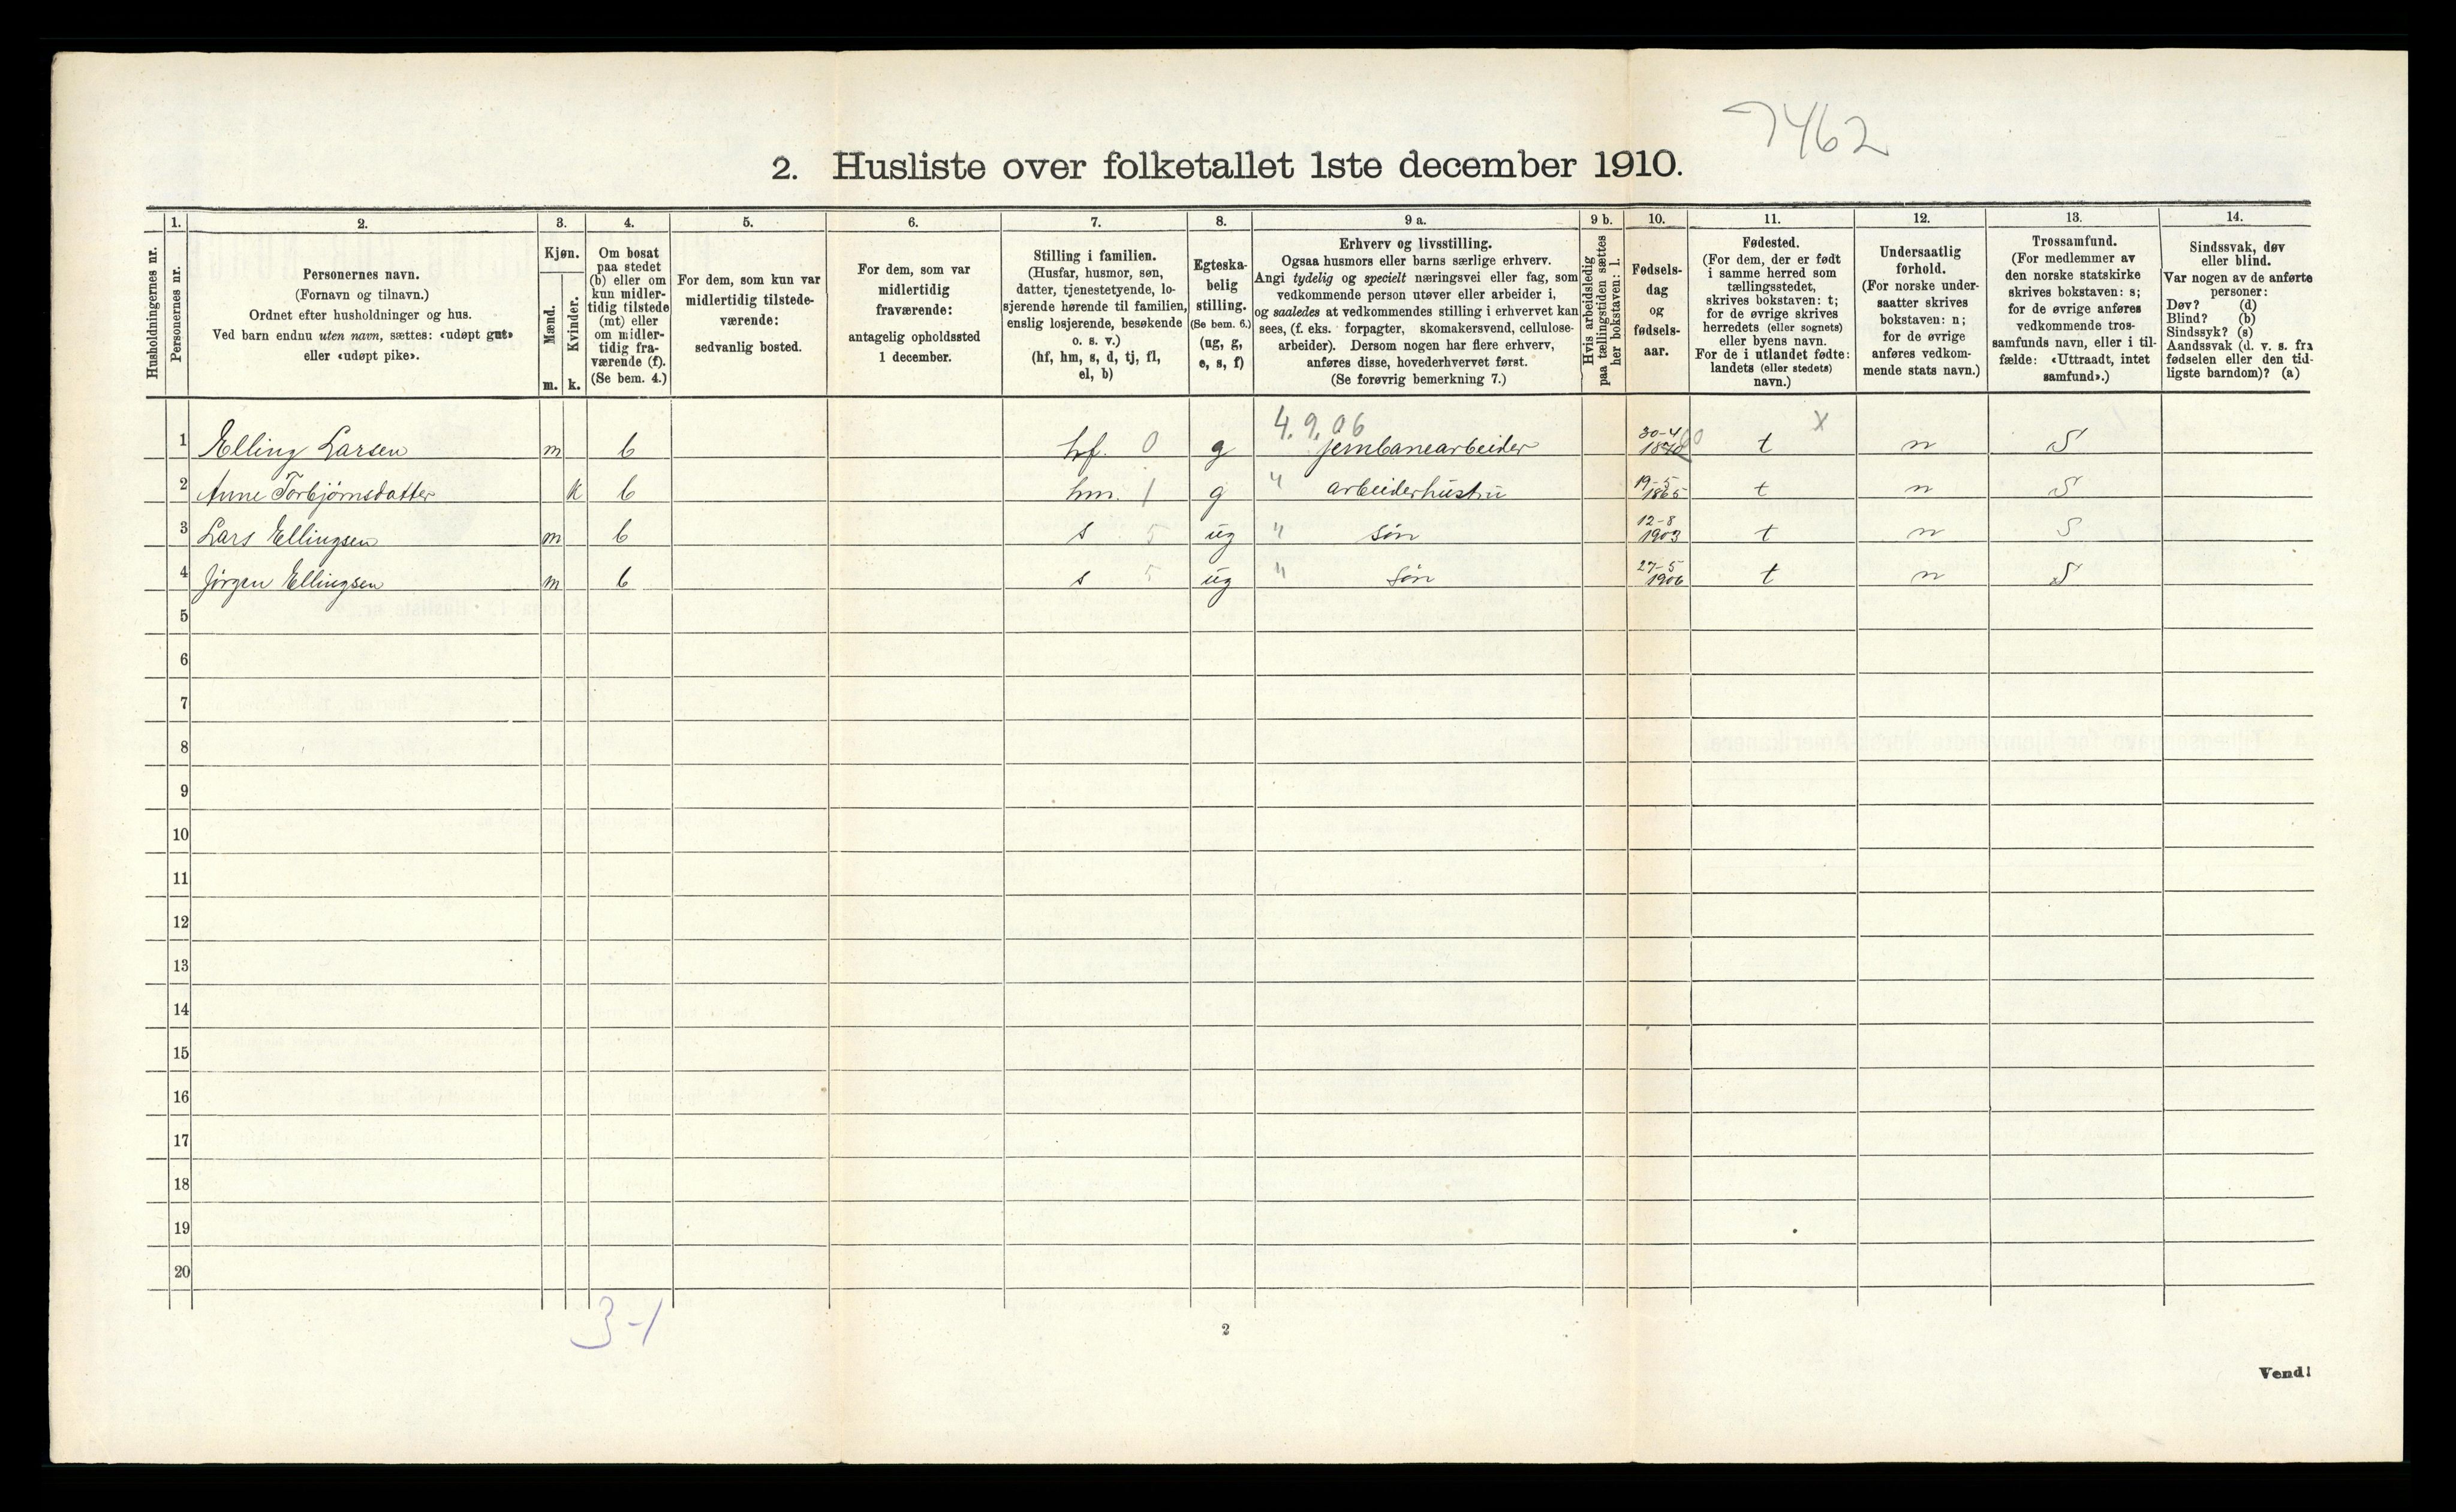 7462
2. Husliste over folketallet 1ste december 1910.
Husholdningernes nr.
1.
Personernes nr.
2.
Personernes navn.
(Fornavn og tilnavn.)
Ordnet efter husholdninger og hus.
Ved barn endnu uten navn, sættes: «udøpt gut»
eller «udøpt pike».
3.
Kjøn.
Mænd.
Kvinder.
m. k.
4.
Om bosat
paa stedet
(b) eller om
kun midler-
tidig tilstede
(mt) eller
om midler-
tidig fra-
værende (f).
(Se bem. 4.)
5.
For dem, som kun var
midlertidig tilstede-
værende:
sedvanlig bosted.
6.
For dem, som var
midlertidig
fraværende:
antagelig opholdssted
1 december.
7.
Stilling i familien.
(Husfar, husmor, søn,
datter, tjenestetyende, lo-
sjerende hørende til familien,
enslig losjerende, besøkende
o. s. v.)
(hf, hm, s, d, tj, fl,
el, b)
8.
Egteska-
belig
stilling.
(Se bem. 6.)
(ug, g,
e, s, f)
9 a.
Erhverv og livsstilling.
Ogsaa husmors eller barns særlige erhverv.
Angi tydelig og specielt næringsvei eller fag, som
vedkommende person utøver eller arbeider i,
og saaledes at vedkommendes stilling i erhvervet kan
sees, (f. eks. forpagter, skomakersvend, cellulose-
arbeider). Dersom nogen har flere erhverv,
anføres disse, hovederhvervet først.
(Se forøvrig bemerkning 7.)
9 b.
Hvis arbeidsledig
paa tællingstiden sættes
her bokstaven: l.
10.
Fødsels-
dag
og
fødsels-
aar.
11.
Fødested.
(For dem, der er født
i samme herred som
tællingsstedet,
skrives bokstaven: t;
for de øvrige skrives
herredets (eller sognets)
eller byens navn.
For de i utlandet fødte:
landets (eller stedets)
navn.)
12.
Undersaatlig
forhold.
(For norske under-
saatter skrives
bokstaven: n;
for de øvrige
anføres vedkom-
mende stats navn.)
13.
Trossamfund.
(For medlemmer av
den norske statskirke
skrives bokstaven: s;
for de øvrige anføres
vedkommende tros-
samfunds navn, eller i til-
fælde: «Uttraadt, intet
samfund».)
14.
Sindssvak, døv
eller blind.
Var nogen av de anførte
personer:
Døv? (d)
Blind? (b)
Sindssyk? (s)
Aandssvak (d. v. s. fra
fødselen eller den tid-
ligste barndom)? (a)
4.9.06 x
1 Elling Larsen m b hf. 0 g jernbanearbeider 30-4 t n S
2 Anne Torbjørnsdatter k b hm. 1 g " arbeiderhustru 19-5 1865 t n S
3 Lars Ellingsen m b s 5 ug " søn 12-8 1903 t n S
4 Jørgen Ellingsen m b s 5 ug " søn 27-5 1906 t n S
5
6
7
8
9
10
11
12
13
14
15
16
17
18
19
20
3-1
2
Vend!